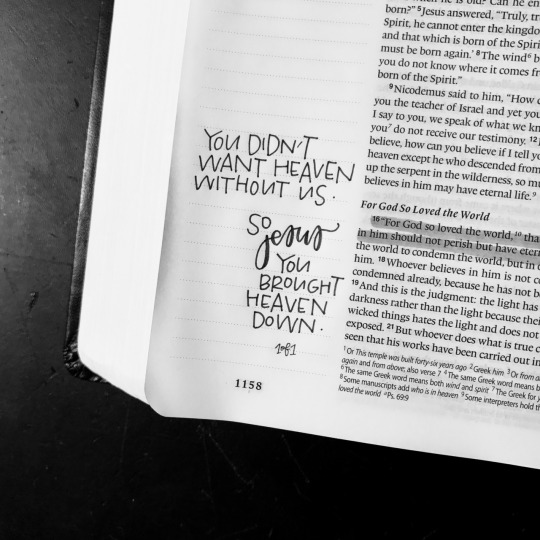 YOU DIDN'T
WANT HEAVEN
WITHOUT US.
SO
Jesus
YOU
BROUGHT
HEAVEN
DOWN.
1of1
1158
he is old? Can he en
born?" ⁵Jesus answered, "Truly, tr
Spirit, he cannot enter the kingdo
and that which is born of the Spiri
must be born again.' ⁸The wind⁶ b
you do not know where it comes fr
born of the Spirit."
⁹Nicodemus said to him, "How c
you the teacher of Israel and yet you
I say to you, we speak of what we kn
you⁷ do not receive our testimony. ¹²I
believe, how can you believe if I tell yo
heaven except he who descended from
up the serpent in the wilderness, so mu
believes in him may have eternal life.⁹
For God So Loved the World
¹⁶"For God so loved the world,¹⁰ tha
in him should not perish but have etern
the world to condemn the world, but in o
him. ¹⁸Whoever believes in him is not c
condemned already, because he has not b
¹⁹And this is the judgment: the light has
darkness rather than the light because thei
wicked things hates the light and does not
exposed. ²¹But whoever does what is true c
seen that his works have been carried out in
¹Or This temple was built forty-six years ago ²Greek him ³Or from a
again and from above; also verse 7 ⁴The same Greek word means b
⁶The same Greek word means both wind and spirit ⁷The Greek for y
⁸Some manuscripts add who is in heaven ⁹Some interpreters hold th
loved the world ᵃPs. 69:9